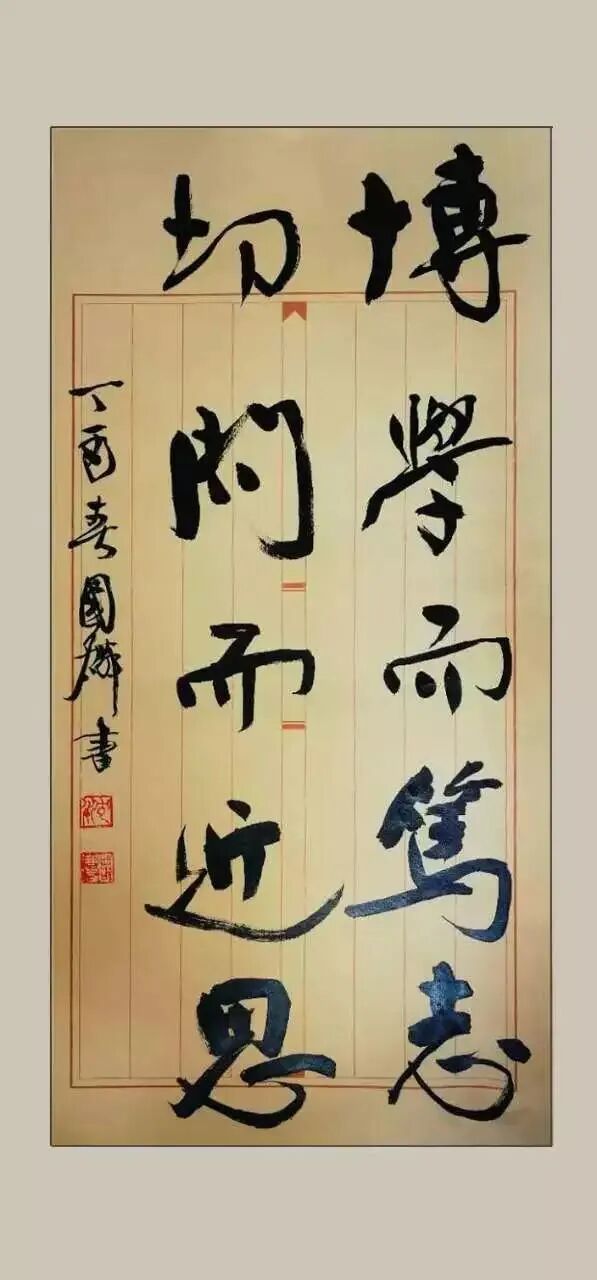 博學而篤志
切問而近思
丁酉春國麟書